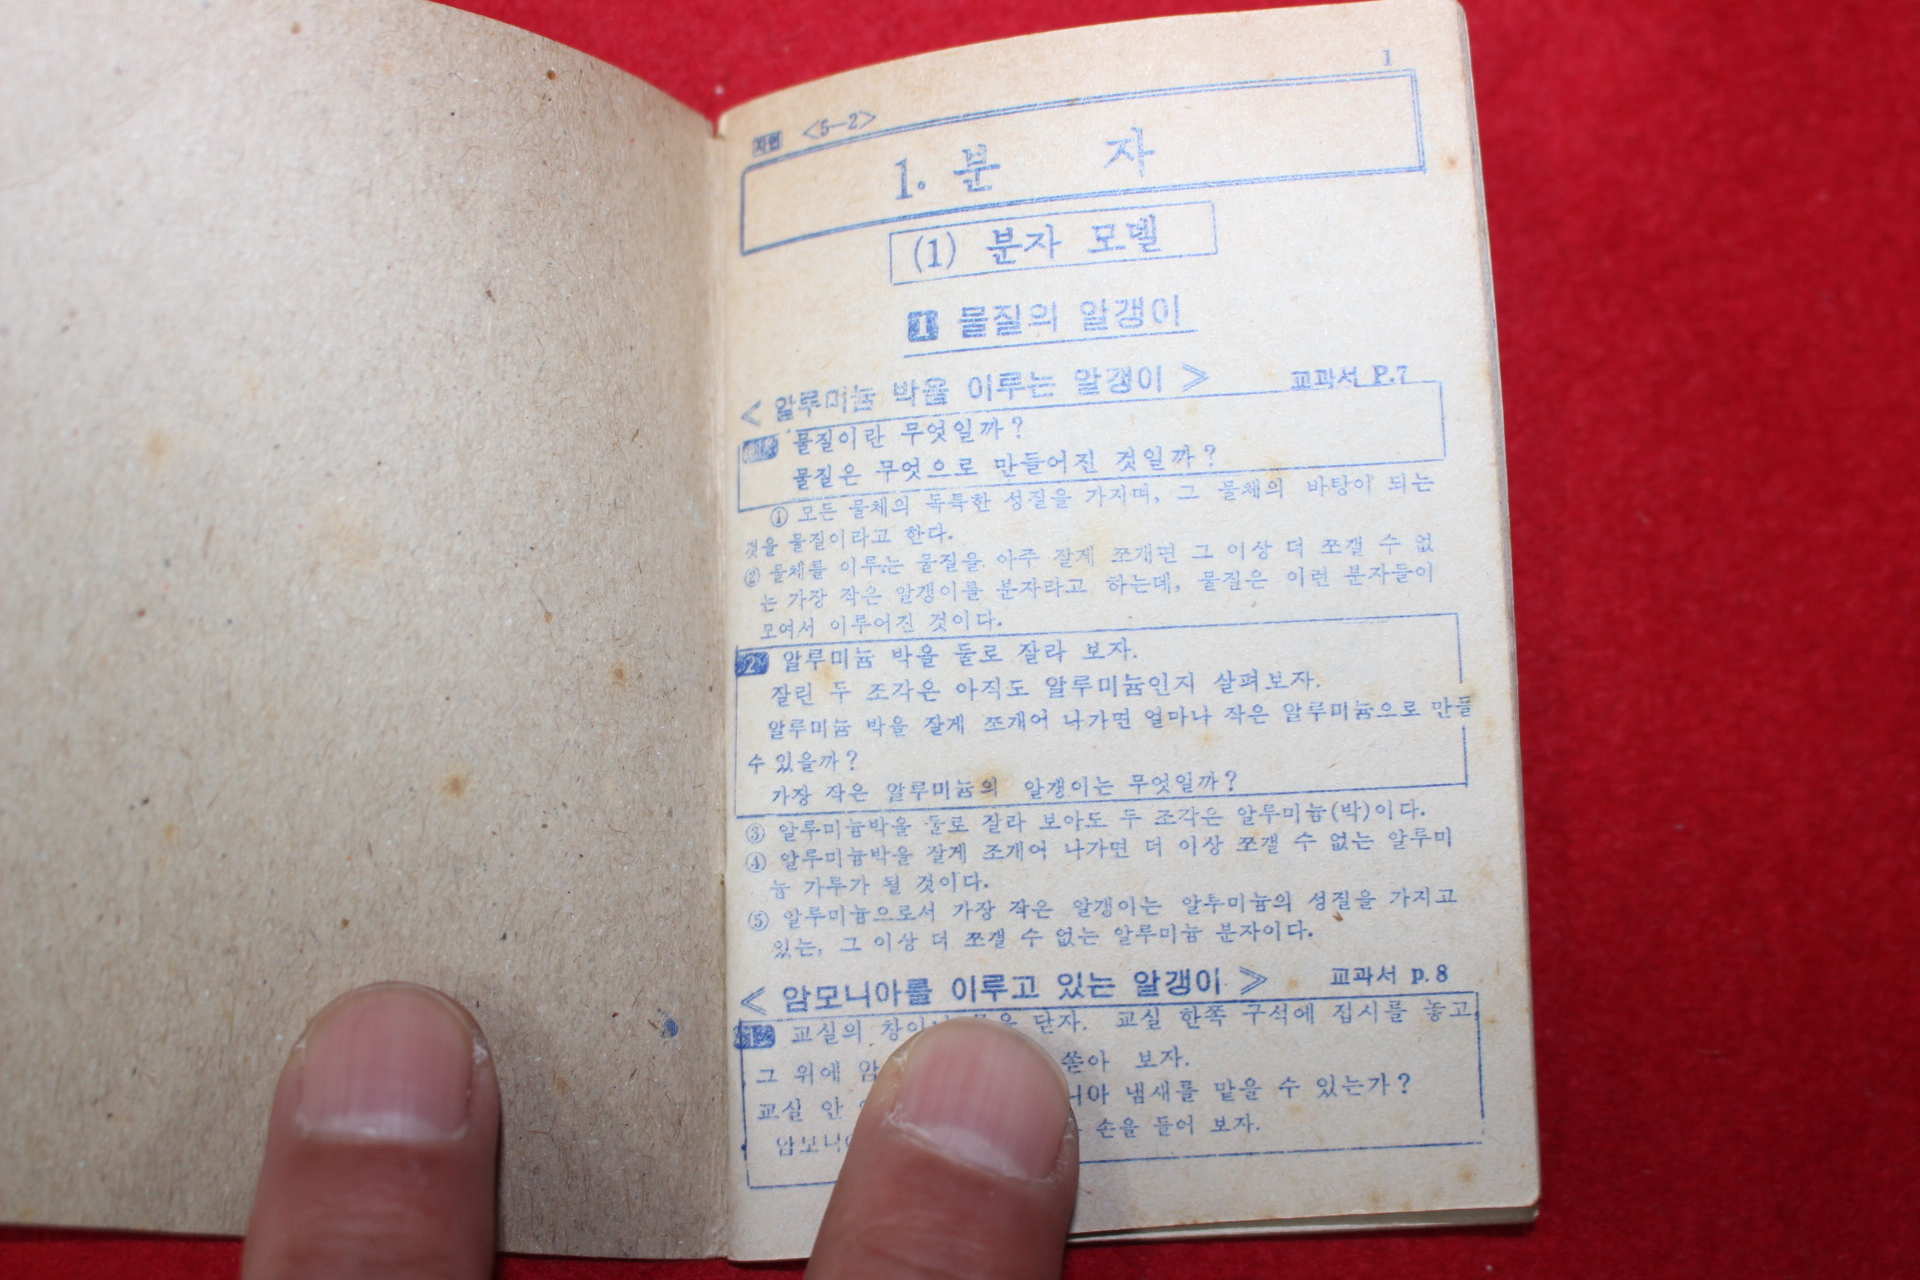 1
자연 <5—2>
1. 분 자
(1) 분자 모델
1 물질의 알갱이
< 알루미늄 박을 이루는 알갱이 > 교과서 P.7
물질이란 무엇일까?
물질은 무엇으로 만들어진 것일까?
① 모든 물체의 독특한 성질을 가지며, 그 물체의 바탕이 되는
것을 물질이라고 한다.
② 물체를 이루는 물질을 아주 잘게 쪼개면 그 이상 더 쪼갤 수 없
는 가장 작은 알갱이를 분자라고 하는데, 물질은 이런 분자들이
모여서 이루어진 것이다.
2 알루미늄 박을 둘로 잘라 보자.
잘린 두 조각은 아직도 알루미늄인지 살펴보자.
알루미늄 박을 잘게 쪼개어 나가면 얼마나 작은 알루미늄으로 만들
수 있을까?
가장 작은 알루미늄의 알갱이는 무엇일까?
③ 알루미늄박을 둘로 잘라 보아도 두 조각은 알루미늄(박)이다.
④ 알루미늄박을 잘게 조개어 나가면 더 이상 쪼갤 수 없는 알루미
늄 가루가 될 것이다.
⑤ 알루미늄으로서 가장 작은 알갱이는 알루미늄의 성질을 가지고
있는, 그 이상 더 쪼갤 수 없는 알루미늄 분자이다.
< 암모니아를 이루고 있는 알갱이 > 교과서 p.8
1 교실의 창이나 닫자. 교실 한쪽 구석에 접시를 놓고,
그 위에 암 쏟아 보자.
교실 안 니아 냄새를 맡을 수 있는가?
암모니 손을 들어 보자.